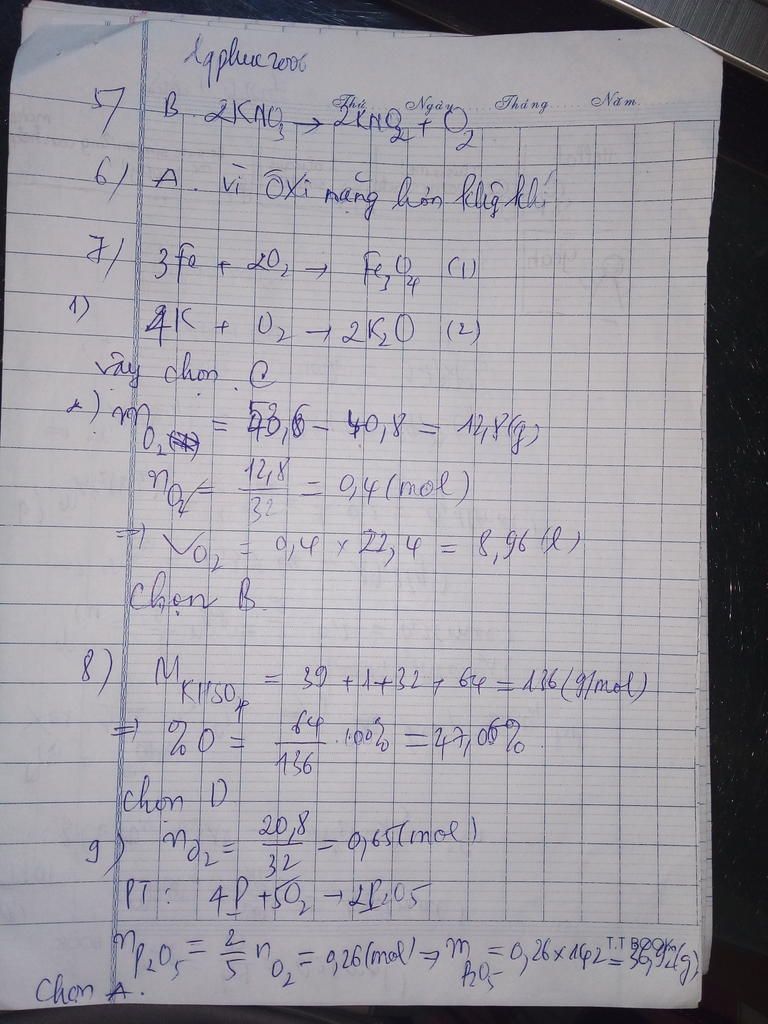 lqphuc2006
Thứ Ngày Tháng Năm
5) B. 2KNO3 → 2KNO2 + O2
6) A. vì Oxi nặng hơn không khí
7) 3Fe + 2O2 → Fe3O4 (1)
1) 4K + O2 → 2K2O (2)
vậy chọn C
2) mO2 = 53,6 - 40,8 = 12,8(g)
nO2 = 12,8/32 = 0,4(mol)
=> VO2 = 0,4 x 22,4 = 8,96(l)
Chọn B.
8) MKHSO4 = 39 + 1 + 32 + 64 = 136(g/mol)
=> %O = 64/136 . 100% = 47,06%.
Chọn D
9) nO2 = 20,8/32 = 0,65(mol)
PT: 4P + 5O2 → 2P2O5
T.T BOOK
nP2O5 = 2/5 nO2 = 0,26(mol) => mP2O5 = 0,26 x 142 = 36,92(g)
Chọn A.